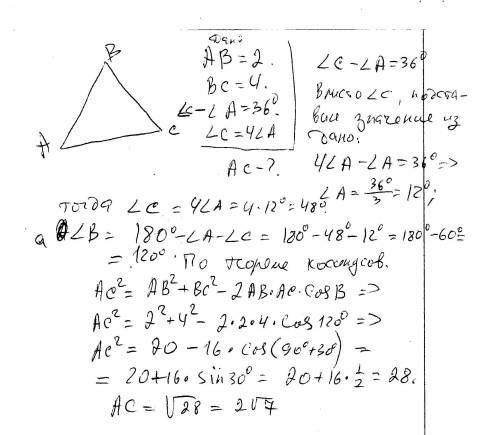 Дано
B
AB = 2.
BC = 4.
∠C - ∠A = 36°.
∠C = 4∠A
AC - ?
A
C
∠C - ∠A = 36°
Вместо ∠C, подста-
вим значение из
дано:
4∠A - ∠A = 36° =>
∠A = 36°/3 = 12°;
тогда ∠C = 4∠A = 4·12° = 48°
а ∠B = 180° - ∠A - ∠C = 180° - 48° - 12° = 180° - 60° =
= 120°. По теореме косинусов.
AC² = AB² + BC² - 2AB·AC·cosB =>
AC² = 2² + 4² - 2·2·4·cos120° =>
AC² = 20 - 16·cos(90° + 30) =
= 20 + 16·sin30° = 20 + 16·1/2 = 28.
AC = √28 = 2√7